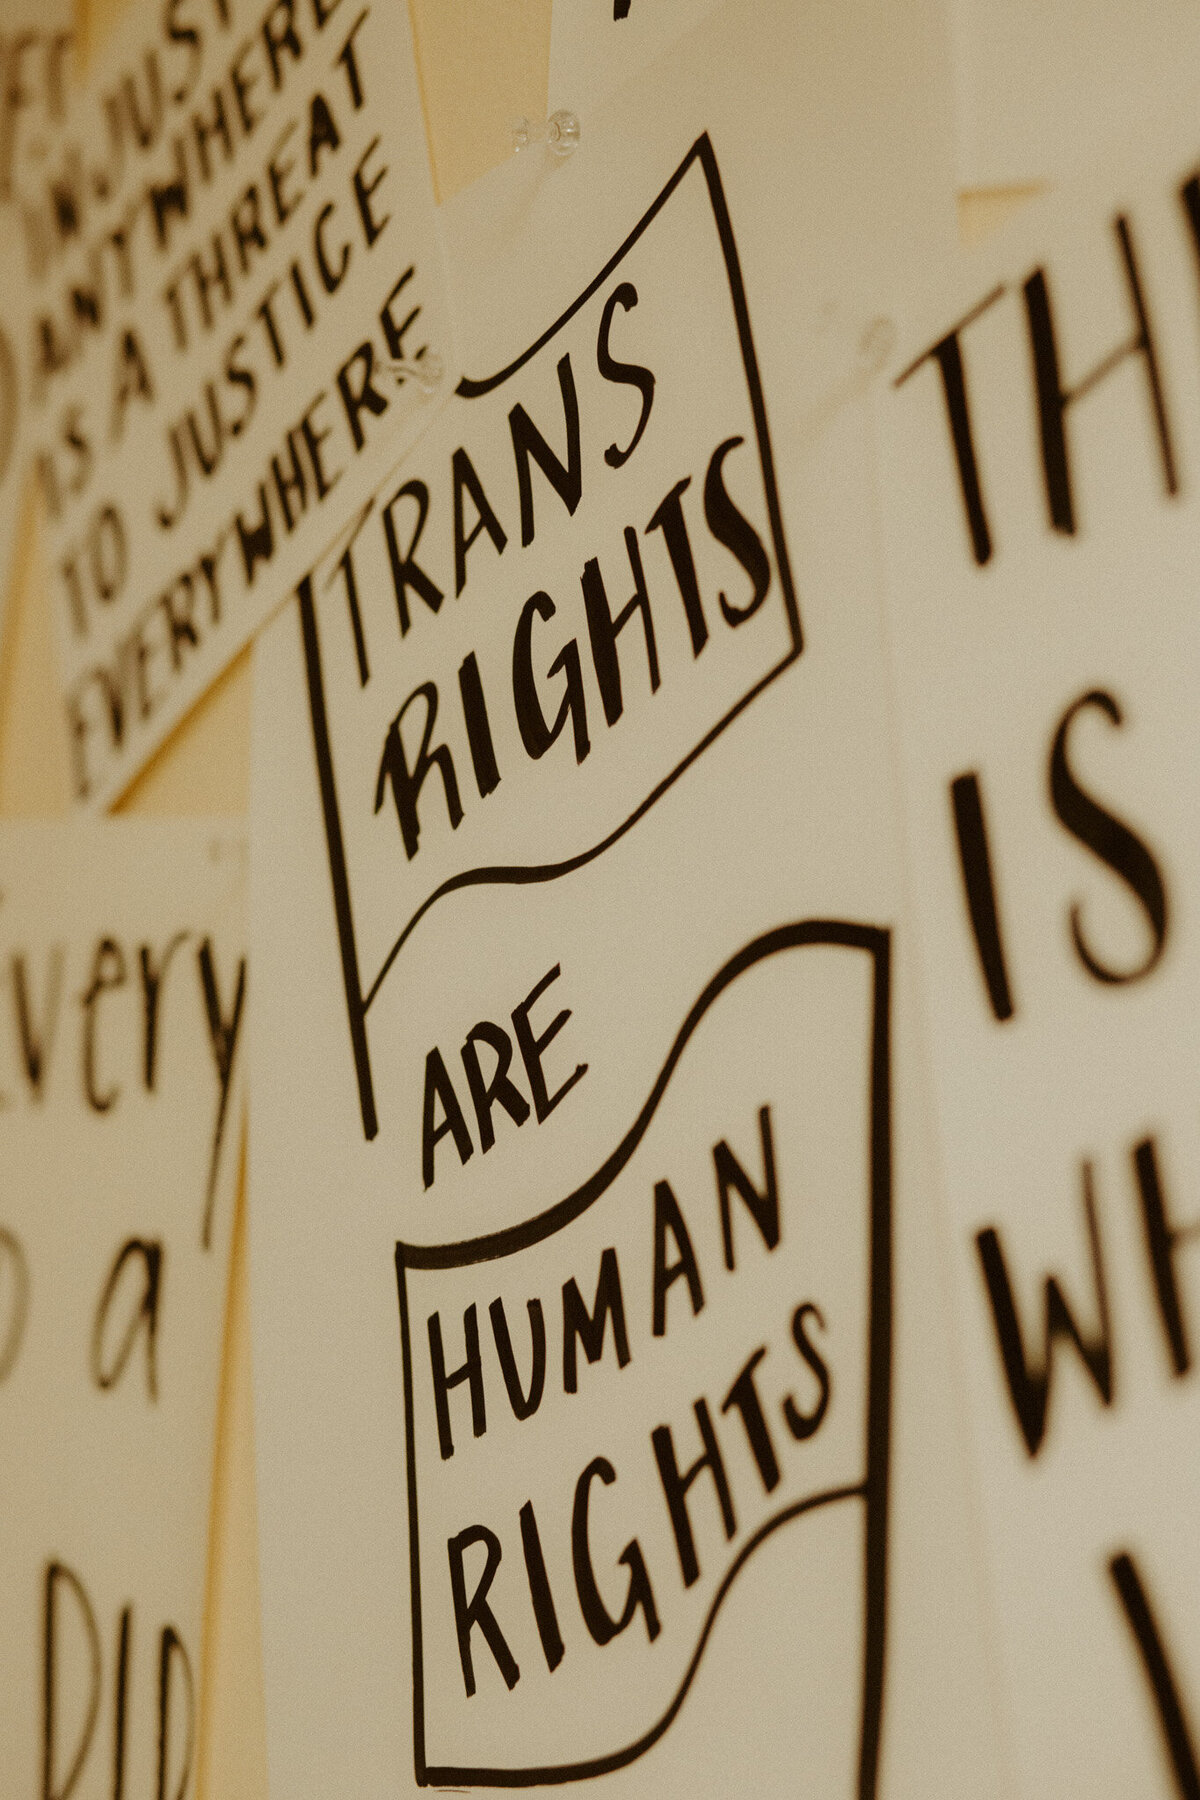 INJUST
ANYWHERE
IS A THREAT
TO JUSTICE
EVERYWHERE
TRANS
RIGHTS
ARE
HUMAN
RIGHTS
very
a
DID
TH
IS
WH